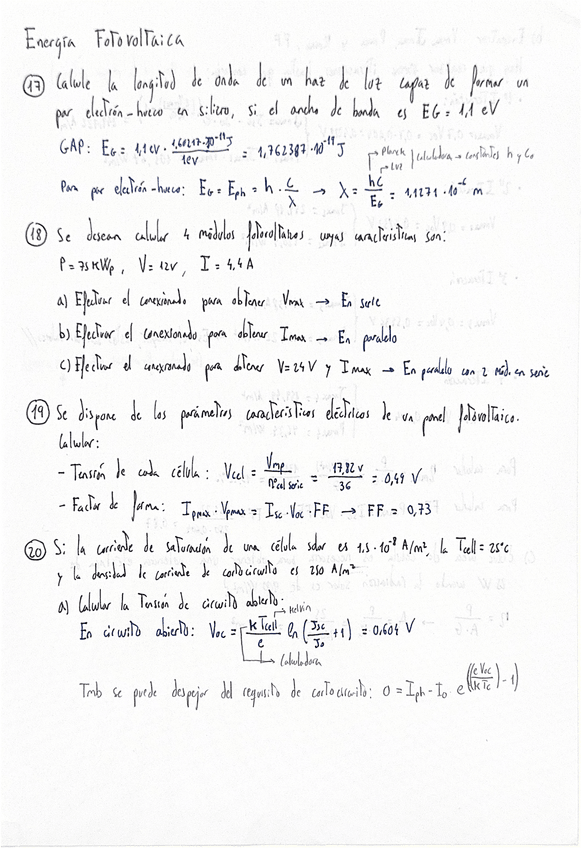 Energía Fotovoltaica
17 Calcule la longitud de onda de un haz de luz capaz de formar un
par electrón-hueco en silicio, si el ancho de banda es EG = 1,1 eV
GAP: EG = 1,1 eV · 1,60217·10^-19 J / 1 eV = 1,762387·10^-19 J
Planck
Luz
calculadora → constantes h y C0
Para par electrón-hueco: EG = Eph = h · c/λ → λ = hC/EG = 1,1271 · 10^-6 m
18 Se desean calcular 4 módulos fotovoltaicos cuyas características son:
P = 75 KWp , V = 12v , I = 4,4 A
a) Efectuar el conexionado para obtener Vmax → En serie
b) Efectuar el conexionado para obtener Imax → En paralelo
c) Efectuar el conexionado para obtener V = 24 V y I max → En paralelo con 2 mód. en serie
19 Se dispone de los parámetros característicos eléctricos de un panel fotovoltaico.
Calcular:
- Tensión de cada célula: Vcel = Vmp / nº cel serie = 17,82 v / 36 = 0,49 V
- Factor de forma: Ipmax · Vpmax = Isc · Voc · FF → FF = 0,73
20 Si la corriente de saturación de una célula solar es 1,5 · 10^-8 A/m², la Tcell = 25°C
y la densidad de corriente de cortocircuito es 250 A/m²
a) Calcular la Tensión de circuito abierto.
Kelvin
En circuito abierto: Voc = K Tcell / e ln (Jsc/J0 + 1) = 0,604 V
Calculadora
Tmb se puede despejar del requisito de cortocircuito: 0 = Iph - I0 e^((e Voc / K Tc) - 1)